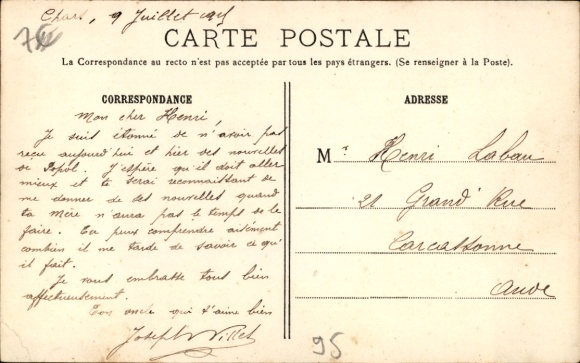 76
9 Juillet
CARTE POSTALE
La Correspondance au recto n'est pas acceptée par tous les pays étrangers. (Se renseigner à la Poste).
CORRESPONDANCE
Mon cher Henri,
Je suis étonné de n'avoir pas
reçu aujourd'hui et hier des nouvelles
de Popol. J'espère qu'il doit aller
mieux et te serai reconnaissant de
me donner de ses nouvelles quand
ta Mère n'aura pas le temps de le
faire. Tu peux comprendre aisément
combien il me tarde de savoir ce qu'
il fait.
Je vous embrasse tous bien
affectueusement.
Ton oncle qui t'aime bien
Joseph
ADRESSE
Mr Henri Labau
21 Grand' Rue
Carcassonne
Aude
95